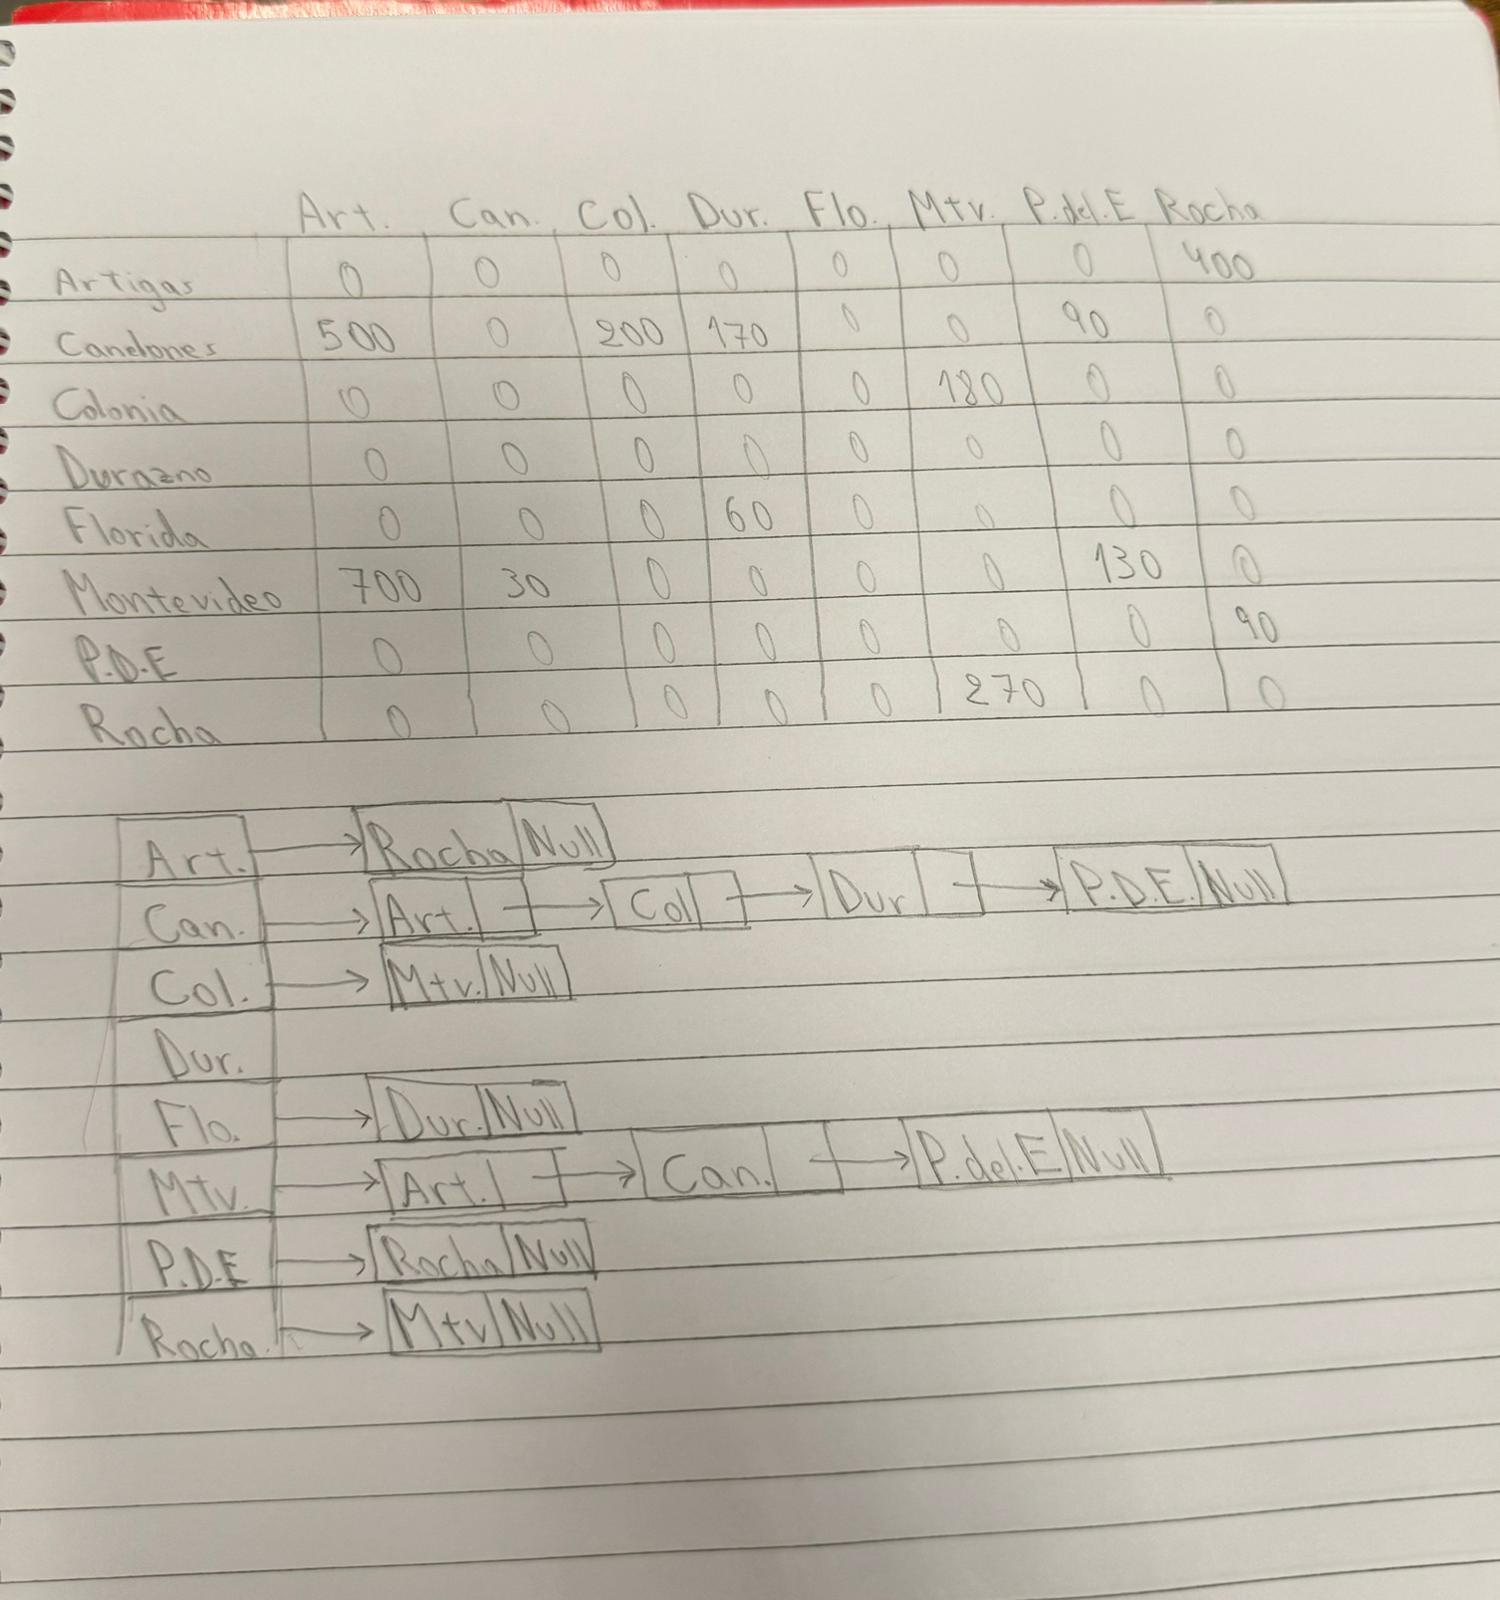 Art. Can. Col. Dur. Flo. Mtv. P.del.E Rocha
Artigas 0 0 0 0 0 0 0 400
Canelones 500 0 200 170 0 0 90 0
Colonia 0 0 0 0 0 180 0 0
Durazno 0 0 0 0 0 0 0 0
Florida 0 0 0 60 0 0 0 0
Montevideo 700 30 0 0 0 0 130 0
P.D.E 0 0 0 0 0 0 0 90
Rocha 0 0 0 0 0 270 0 0
Art. → Rocha Null
Can. → Art. → Col → Dur → P.D.E. Null
Col. → Mtv. Null
Dur.
Flo. → Dur. Null
Mtv. → Art. → Can. → P.del.E Null
P.D.E → Rocha Null
Rocha. → Mtv Null